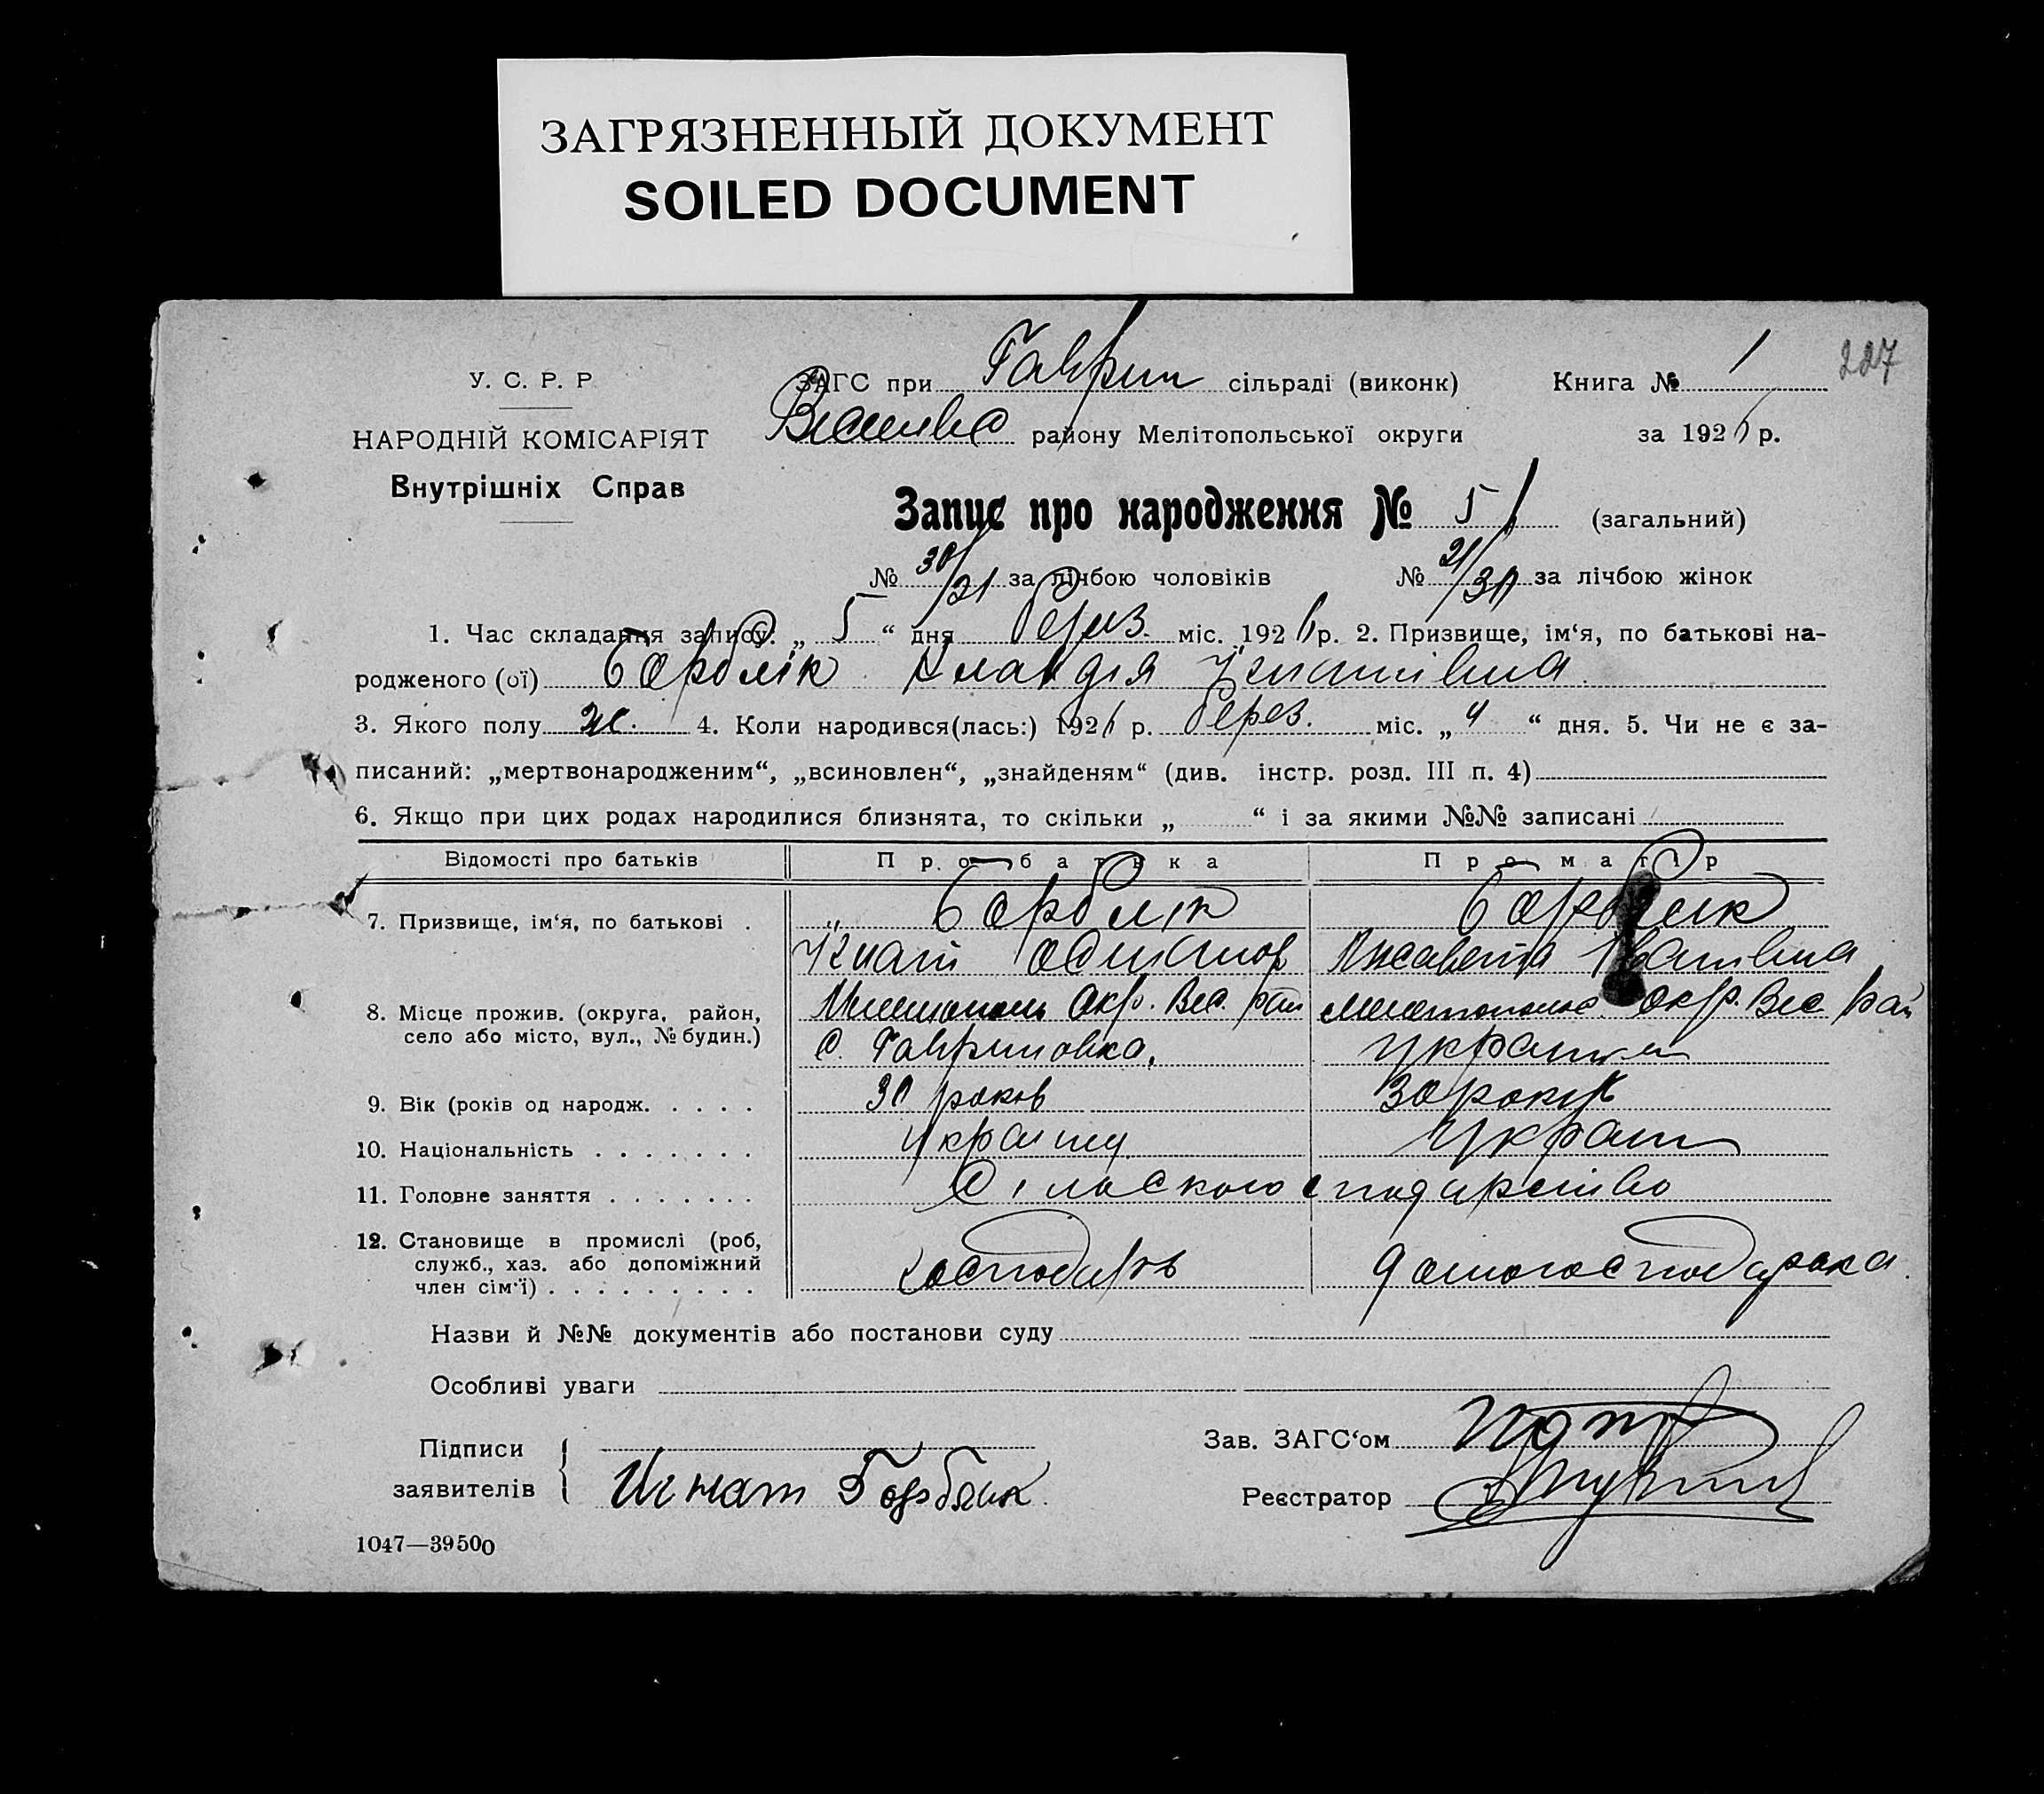 ЗАГРЯЗНЕННЫЙ ДОКУМЕНТ
SOILED DOCUMENT
227
У. С. Р. Р
НАРОДНІЙ КОМІСАРІЯТ
Внутрішніх Справ
ЗАГС при Гаврил сільраді (виконк) Книга № 1
району Мелітопольської округи за 192 р.
Запис про народження № 51 (загальний)
№ 30/21 за лічбою чоловіків № 21/30 за лічбою жінок
1. Час складання запису: „ 5 “ дня берез. міс. 192 р. 2. Призвище, ім‘я, по батькові на-
родженого (ої) Клавдія Ігнатівна
3. Якого полу ж. 4. Коли народився(лась:) 192 р. берез. міс. „ 4 “ дня. 5. Чи не є за-
писаний: „мертвонародженим“, „всиновлен“, „знайденям“ (див. інстр. розд. III п. 4)
6. Якщо при цих родах народилися близнята, то скільки „ “ і за якими №№ записані
Відомості про батьків Про батька Про матір
7. Призвище, ім‘я, по батькові .
Ігнат Лисавета Іванівна
8. Місце прожив. (округа, район, Окр. Вес. рай Окр. Вес рай
село або місто, вул., № будин.) с. Гавриловка,
9. Вік (років од народж. . . . . 30 роков 30 років
10. Національність . . . . . . .
11. Головне заняття . . . . . . .
12. Становище в промислі (роб,
служб., хаз. або допоміжний господарь домогосподарка
член сім‘ї) . . . . . . . . .
Назви й №№ документів або постанови суду
Особливі уваги
Підписи
заявителів Игнат
Зав. ЗАГС‘ом
Реєстратор
1047—39500